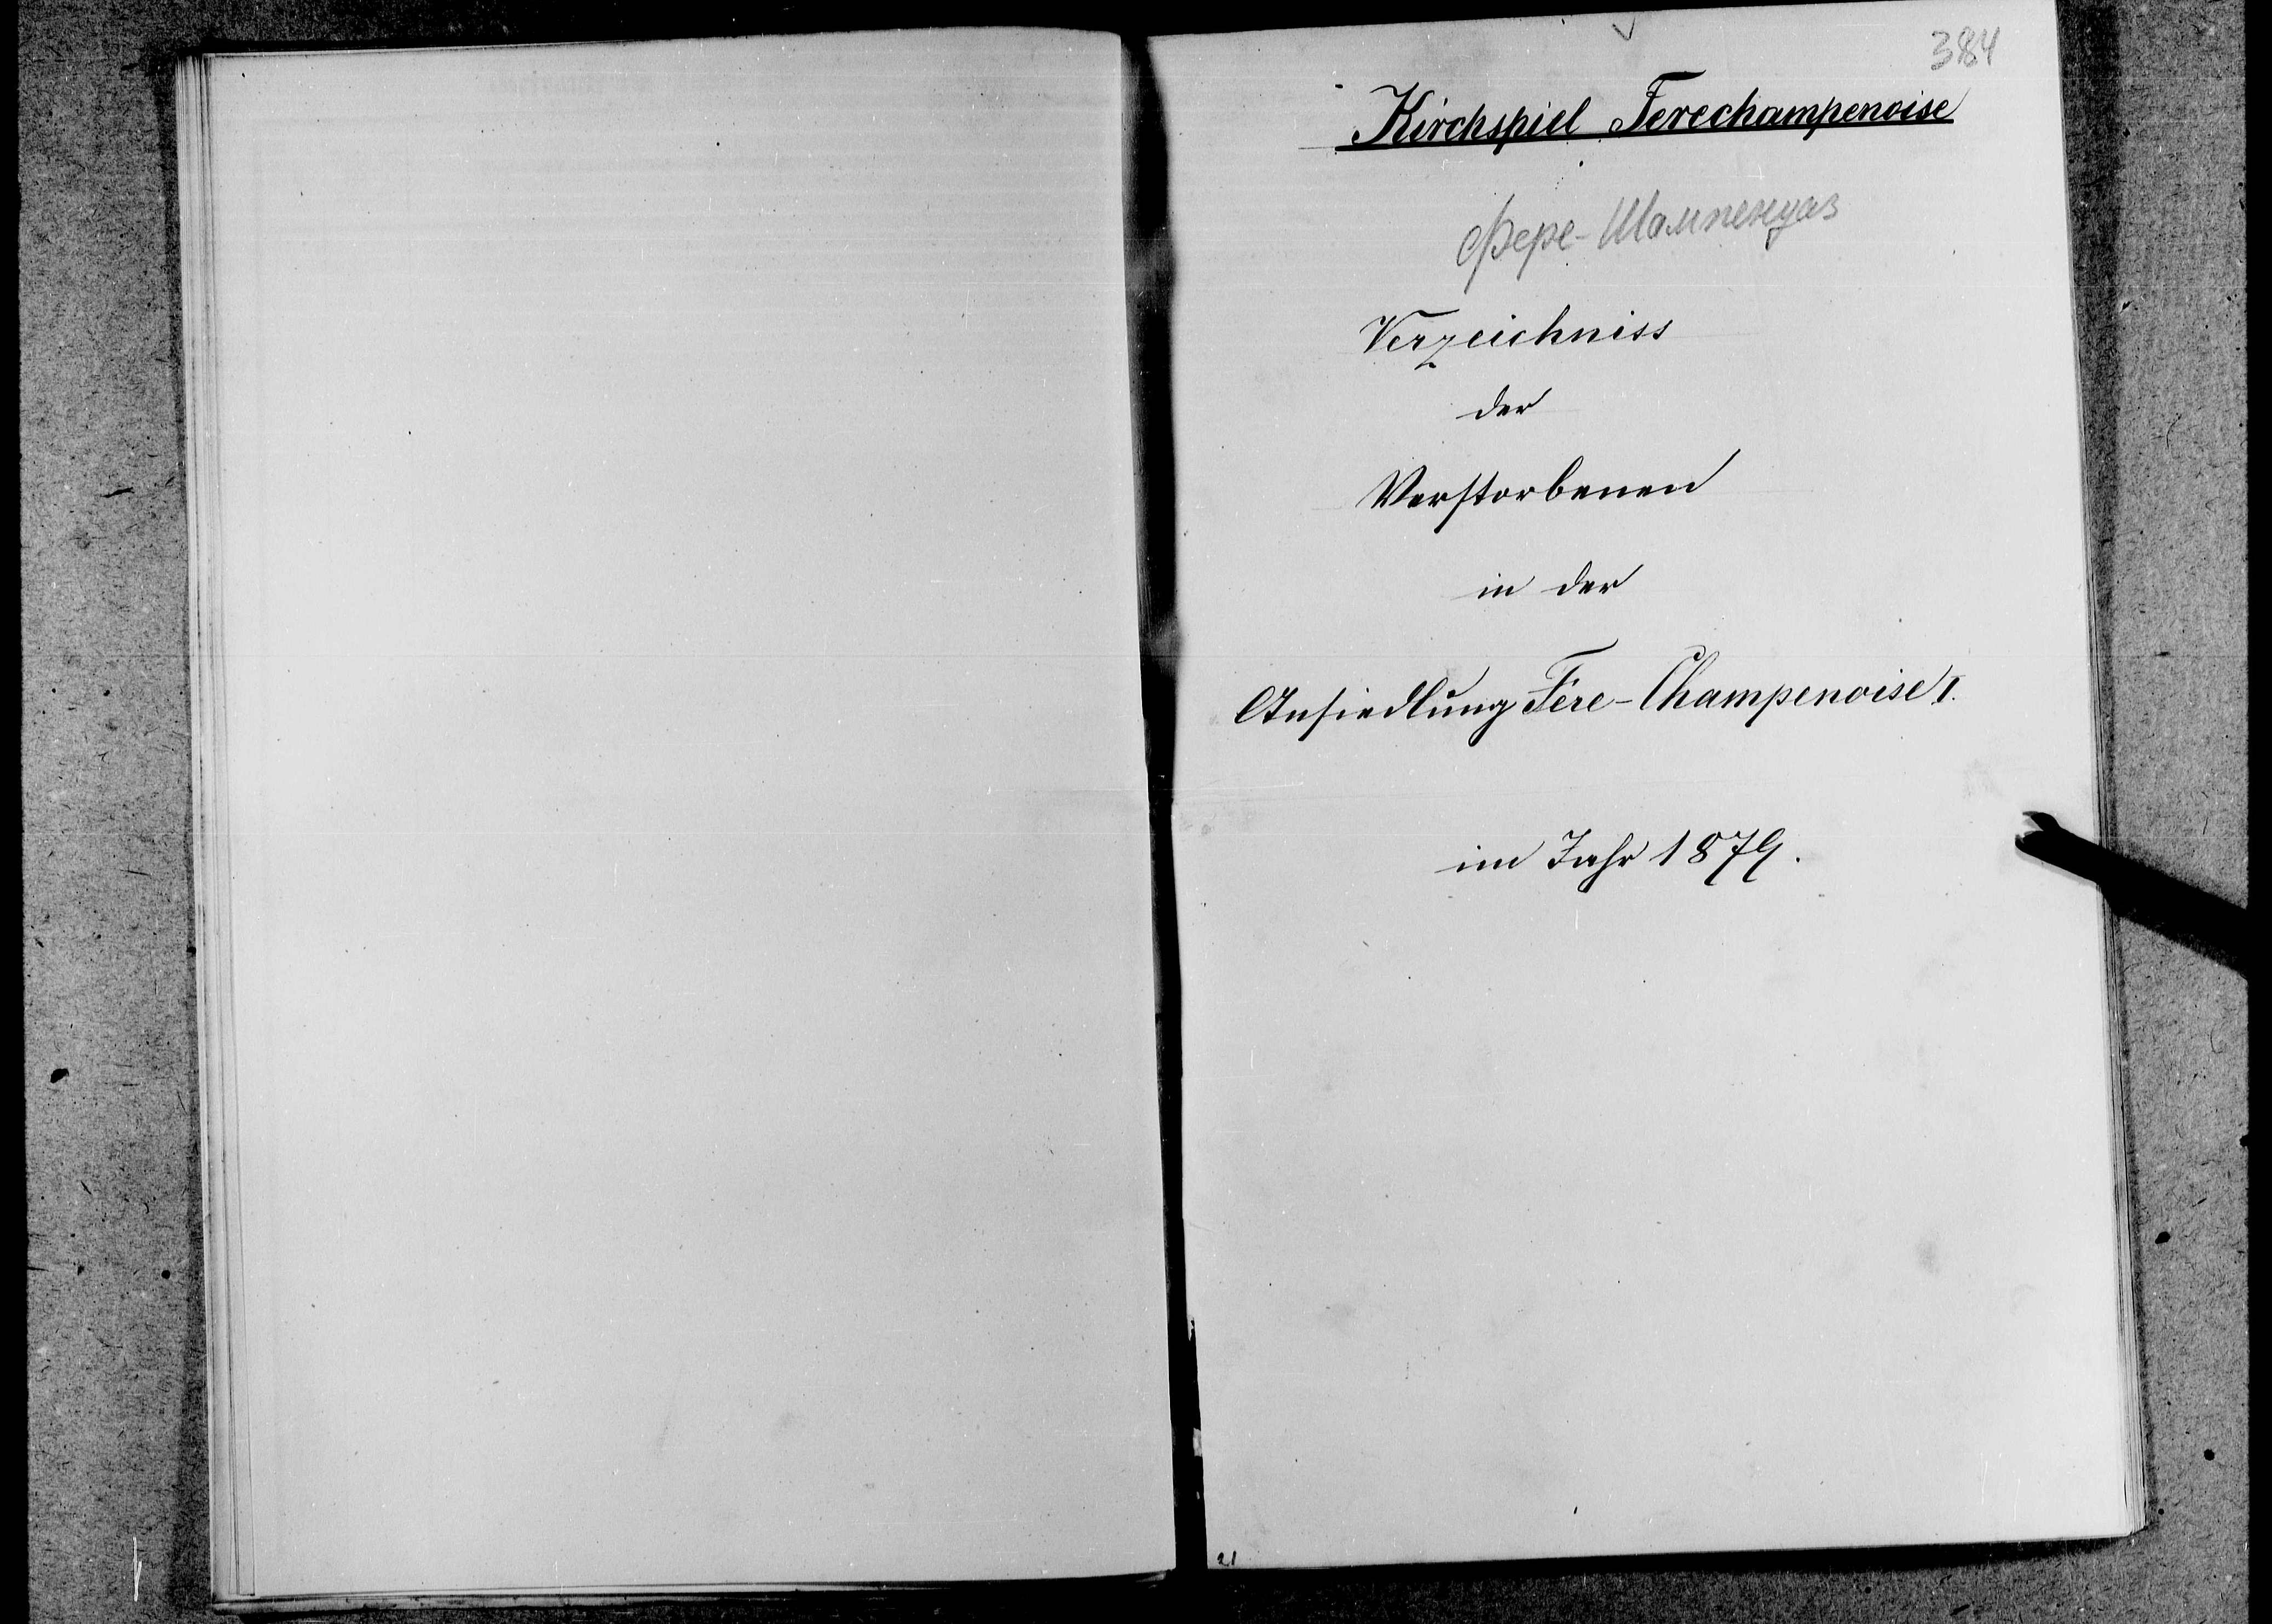 384
Kirchspiel Ferechampenoise
Фере-Шампенуаз
Verzeichniss
der
Verstorbenen
in der
Ansiedlung Fère-Champenoise I.
im Jahr 1879.
21